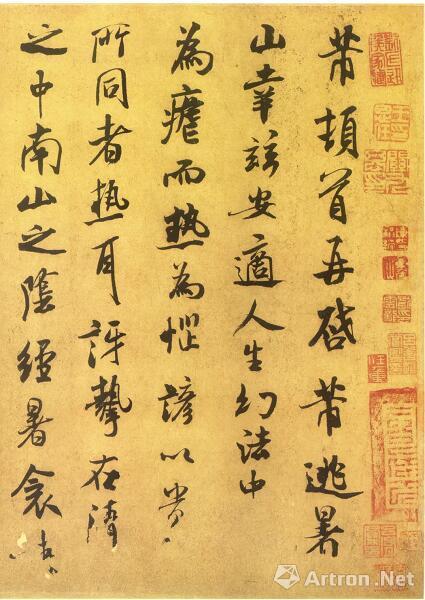 芾頓首再啓芾逃暑
山幸茲安適人生幻法中
為瘧而熱為惱諺以貴
所同者熱耳訝摯在清
之中南山之陰經暑衾
Artron.Net